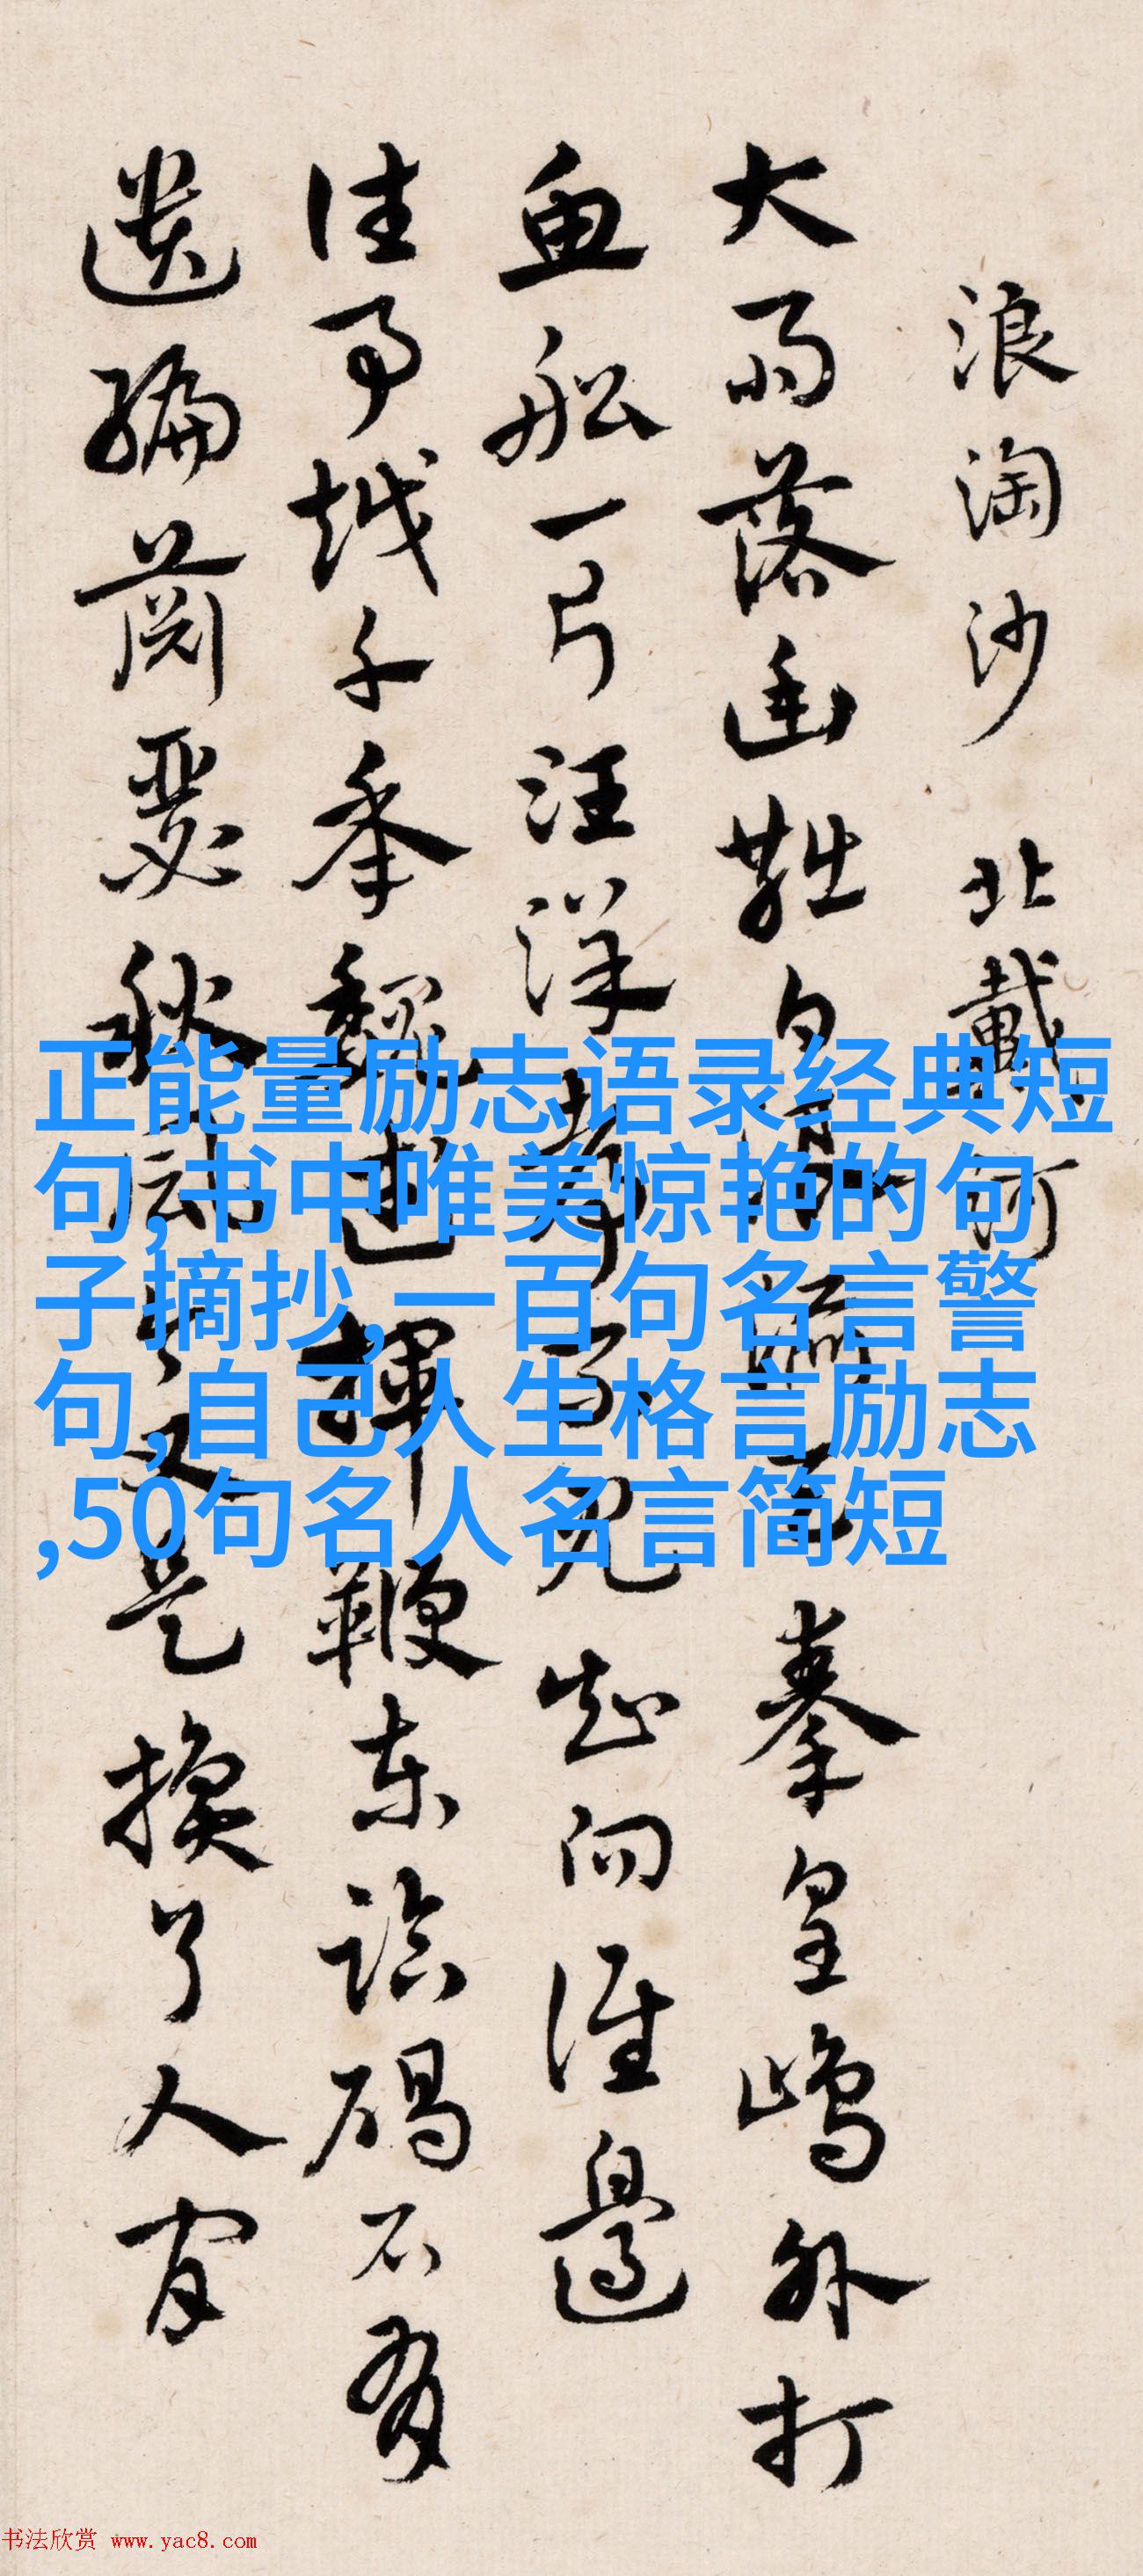 浪淘沙 北戴河
大雨落幽燕白浪滔天秦皇島外打
魚船一片汪洋都不見知向誰邊
往事越千年魏武揮鞭東臨碣石有
遺編蕭瑟秋風今又是換了人間
正能量励志语录经典短
句,书中唯美惊艳的句
子摘抄,一百句名言警
句,自己人生格言励志
,50句名人名言简短
书法欣赏 www.yac8.com